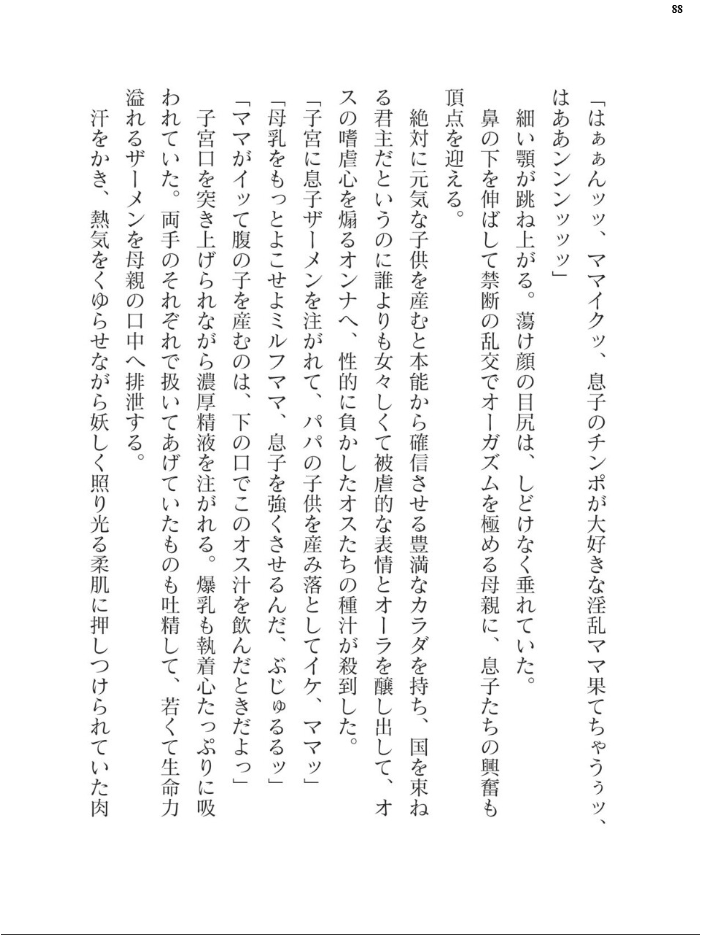 88
「はぁぁんッッ、ママイクッ、息子のチンポが大好きな淫乱ママ果てちゃうぅッ、
はああンンンッッッ」
細い顎が跳ね上がる。蕩け顔の目尻は、しどけなく垂れていた。
鼻の下を伸ばして禁断の乱交でオーガズムを極める母親に、息子たちの興奮も
頂点を迎える。
絶対に元気な子供を産むと本能から確信させる豊満なカラダを持ち、国を束ね
る君主だというのに誰よりも女々しくて被虐的な表情とオーラを醸し出して、オ
スの嗜虐心を煽るオンナへ、性的に負かしたオスたちの種汁が殺到した。
「子宮に息子ザーメンを注がれて、パパの子供を産み落としてイケ、ママッ」
「母乳をもっとよこせよミルフママ、息子を強くさせるんだ、ぶじゅるるッ」
「ママがイッて腹の子を産むのは、下の口でこのオス汁を飲んだときだよっ」
子宮口を突き上げられながら濃厚精液を注がれる。爆乳も執着心たっぷりに吸
われていた。両手のそれぞれで扱いてあげていたものも吐精して、若くて生命力
溢れるザーメンを母親の口中へ排泄する。
汗をかき、熱気をくゆらせながら妖しく照り光る柔肌に押しつけられていた肉